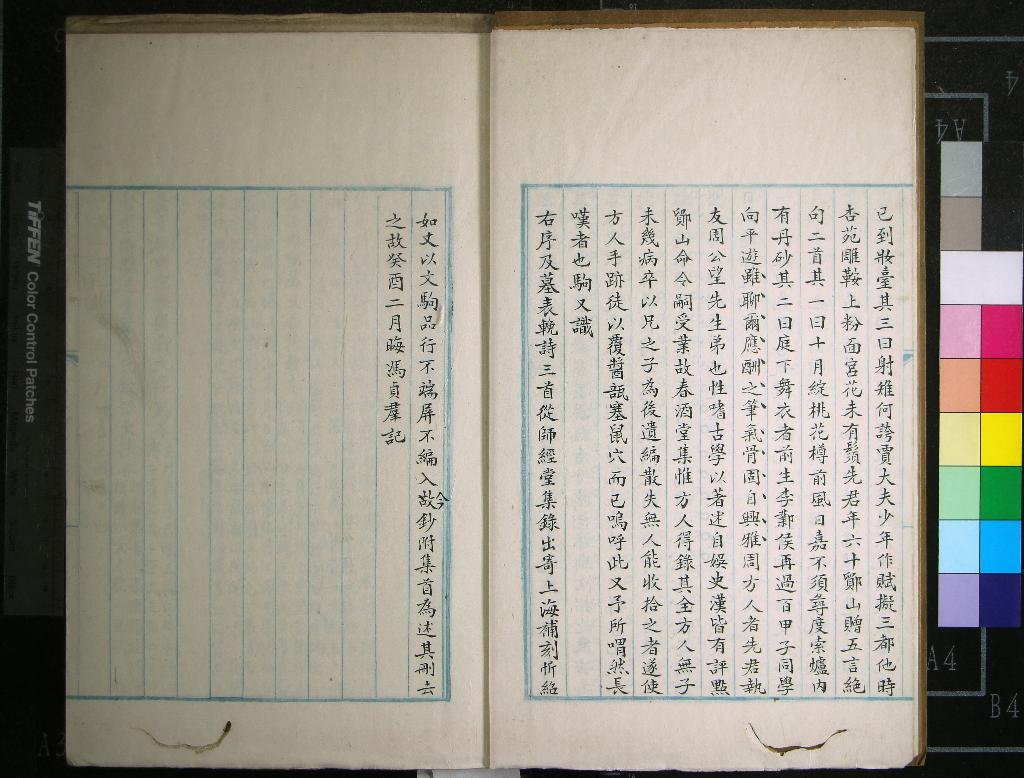 已到妝臺其三曰射雉何誇賈大夫少年作賦擬三都他時
杏苑雕鞍上粉面宮花未有鬚先君年六十鄮山贈五言絕
句二首其一曰十月綻桃花樽前風日嘉不須尋度索爐內
有丹砂其二曰庭下舞衣者前生李鄴侯再過百甲子同學
向平遊雖聊爾應酬之筆氣骨固自興雅周方人者先君執
友周公望先生弟也性嗜古學以著述自娛史漢皆有評點
鄮山命令嗣受業故春酒堂集惟方人得錄其全方人無子
未幾病卒以兄之子為後遺編散失無人能收拾之者遂使
方人手跡徒以覆醬瓿塞鼠穴而已嗚呼此又予所喟然長
嘆者也駒又識
右序及墓表輓詩三首從師經堂集錄出寄上海補刻忻紹
如丈以文駒品行不端屏不編入故今鈔附集首為述其刪去
之故癸酉二月晦馮貞羣記
TIFFEN Color Control Patches
A4
A4
B4
A3